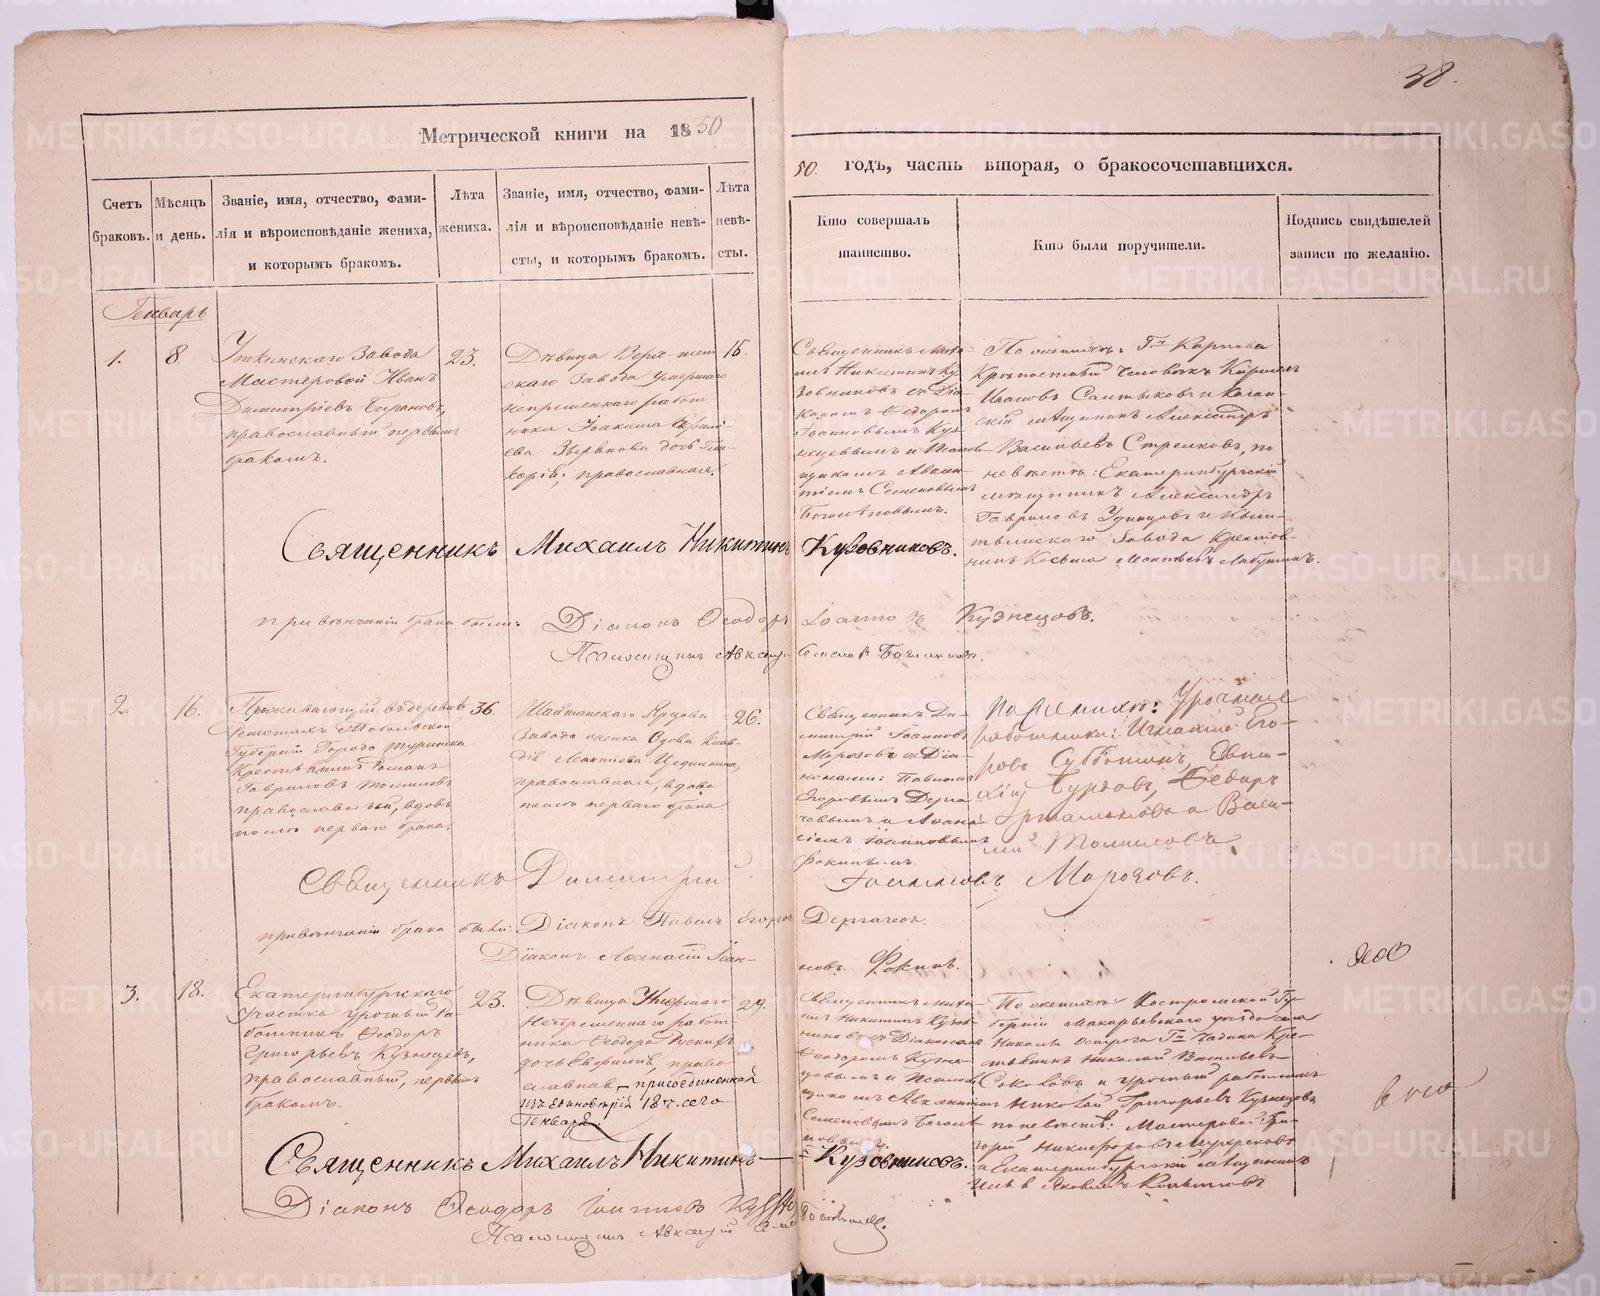 38.
Метрической книги на 1850
50. годъ, часть вторая, о бракосочетавшихся.
Счетъ браковъ.
Мѣсяцъ и день.
Званіе, имя, отчество, фами-
лія и вѣроисповѣданіе жениха,
и которымъ бракомъ.
Лѣта
жениха.
Званіе, имя, отчество, фами-
лія и вѣроисповѣданіе невѣ-
сты, и которымъ бракомъ.
Лѣта
невѣ-
сты.
Кто совершалъ
таинство.
Кто были поручители.
Подпись свидѣтелей
записи по желанію.
Генварь
1.
8
Уткинскаго Завода
Мастеровой Иванъ
Димитріевъ
православный первымъ
бракомъ.
23.
Дѣвица
скаго Завода умершаго
непремѣннаго работ-
ника Іоакима
дочь Гли-
керія, православная.
16.
Священникъ Миха-
илъ Никитинъ Ку-
зовниковъ съ Діа-
кономъ Ѳедоромъ
Іоанновымъ Куз-
нецовымъ и Псалом-
щикомъ Авксен-
тіемъ Семеновымъ
Боголѣповымъ.
По женихѣ: Гна Карпова
Крѣпостной человѣкъ Кирилъ
Ивановъ Салтыковъ и Казан-
скій мѣщанинъ Александръ
Васильевъ Стрелковъ, по
невѣстѣ: Екатеринбургскій
мѣщанинъ Александръ
Гавриловъ Удинцовъ и Кыш-
тымскаго Завода Крестья-
нинъ Косьма
Священникъ Михаилъ Никитинъ Кузовниковъ.
при вѣнчаніи брака были: Діаконъ Ѳеодоръ Іоанновъ Кузнецовъ.
Псаломщикъ
2.
16.
Проживающій въ деревнѣ
Тобольской
Губерніи Города Туринска
Крестьянинъ Романъ
Гавриловъ Томиловъ
православный, вдовъ
послѣ перваго брака.
36.
Шайтанскаго
Завода
православная, вдова
послѣ перваго брака
26.
Священникъ Ди-
митрій Іоанновъ
Морозовъ съ Діа-
конами: Павломъ
Егоровымъ Дерга-
чевымъ и Аѳана-
сіемъ Іоанновымъ
Фокинымъ.
По женихѣ: Урочные
работники: Игнатій Его-
ровъ Субботинъ, Евти-
хій Бурдовъ, Ѳедоръ
и Васи-
лій Томиловъ.
Священникъ Димитрій Іоанновъ Морозовъ.
при вѣнчаніи брака были: Діаконъ Павелъ Егоровъ Дергачевъ
Діаконъ Аѳанасій Іоан-
новъ Фокинъ.
3.
18.
Екатеринбургскаго
участка урочный ра-
ботникъ Ѳеодоръ
Григорьевъ Кузнецовъ,
православный, первымъ
бракомъ.
23.
Дѣвица Умершаго
Непремѣннаго работ-
ника Ѳеодора
дочь Евфимія, право-
славная – присоединенная
изъ единовѣрія 18ч. сего
Генваря.
29.
Священникъ Миха-
илъ Никитинъ Кузов-
никовъ съ Діакономъ
Ѳеодоромъ Кузне-
цовымъ и Псалом-
щикомъ Авксентіемъ
Семеновымъ Боголѣ-
повымъ.
По женихѣ: Костромской Гу-
берніи Макарьевскаго уѣзда села
Николы Гна Кре-
стьянинъ Николай Васильевъ
Соколовъ и урочный работникъ
Николай Григорьевъ Кузнецовъ
по невѣстѣ: Мастеровой Гри-
горій Никифоровъ
а Екатеринбургскій мѣщанинъ
Яковлевъ
Священникъ Михаилъ Никитинъ Кузовниковъ.
Діаконъ Ѳеодоръ Іоанновъ
Псаломщикъ Авксентій
METRIKI.GASO-URAL.RU